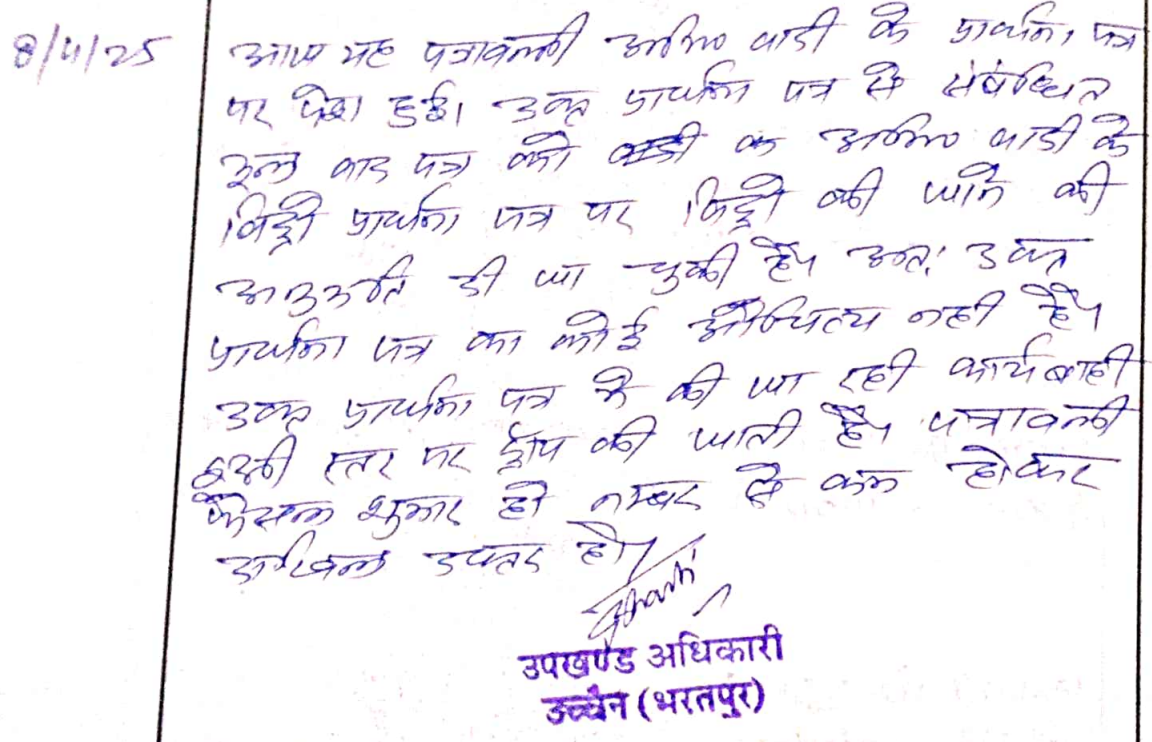 8/4/25 आज यह पत्रावली अभि० वादी के प्रार्थना पत्र
पर पेश हुई। उक्त प्रार्थना पत्र से संबंधित
मूल वाद पत्र को वादी क अभि० वादी के
विड्रो प्रार्थना पत्र पर विड्रो की जाने की
अनुमति दी जा चुकी है। अतः उक्त
प्रार्थना पत्र का कोई औचित्य नही है।
उक्त प्रार्थना पत्र मे की जा रही कार्यवाही
इसी स्तर पर ड्रोप की जाती है। पत्रावली
फैसल शुमार हो नम्बर से कम होकर
दाखिल दफ्तर हो।
उपखण्ड अधिकारी
उच्चैन (भरतपुर)